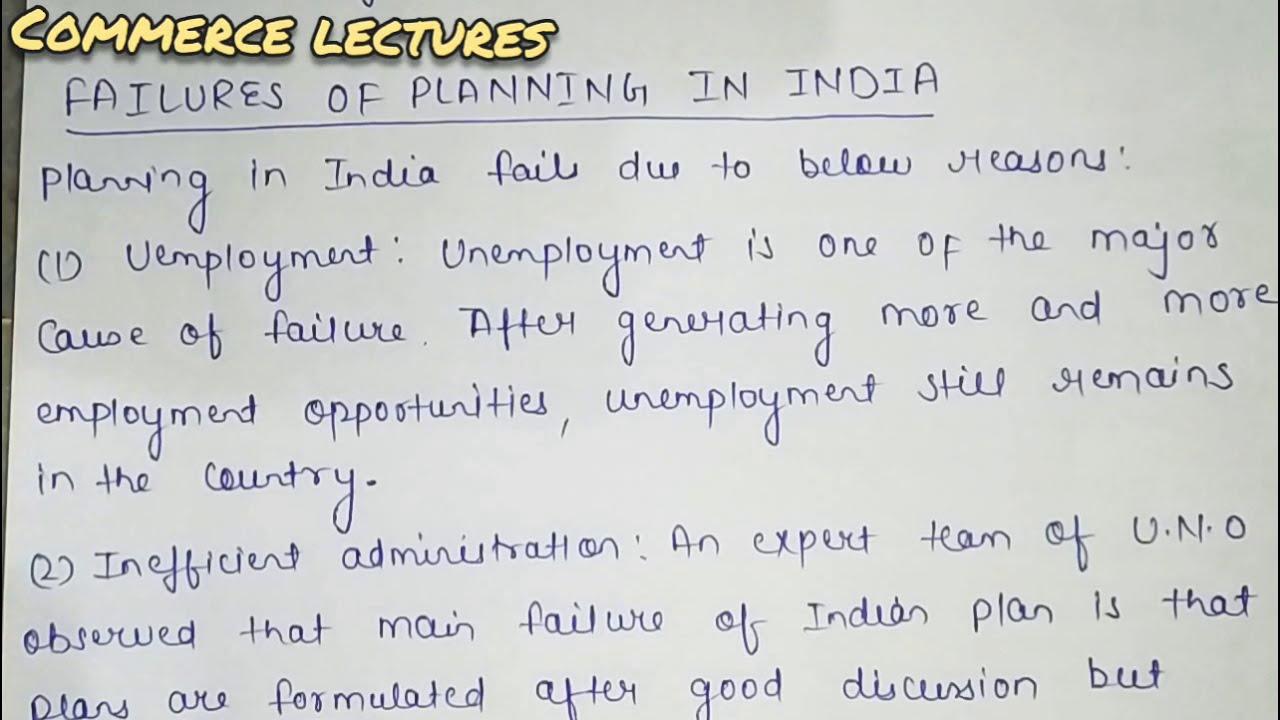 COMMERCE LECTURES
FAILURES OF PLANNING IN INDIA
Planning in India fails due to below reasons:
(1) Uemployment: Unemployment is one of the major
cause of failure. After generating more and more
employment opportunities, unemployment still remains
in the country.
(2) Inefficient administration: An expert team of U.N.O
observed that main failure of Indian plan is that
plans are formulated after good discussion but